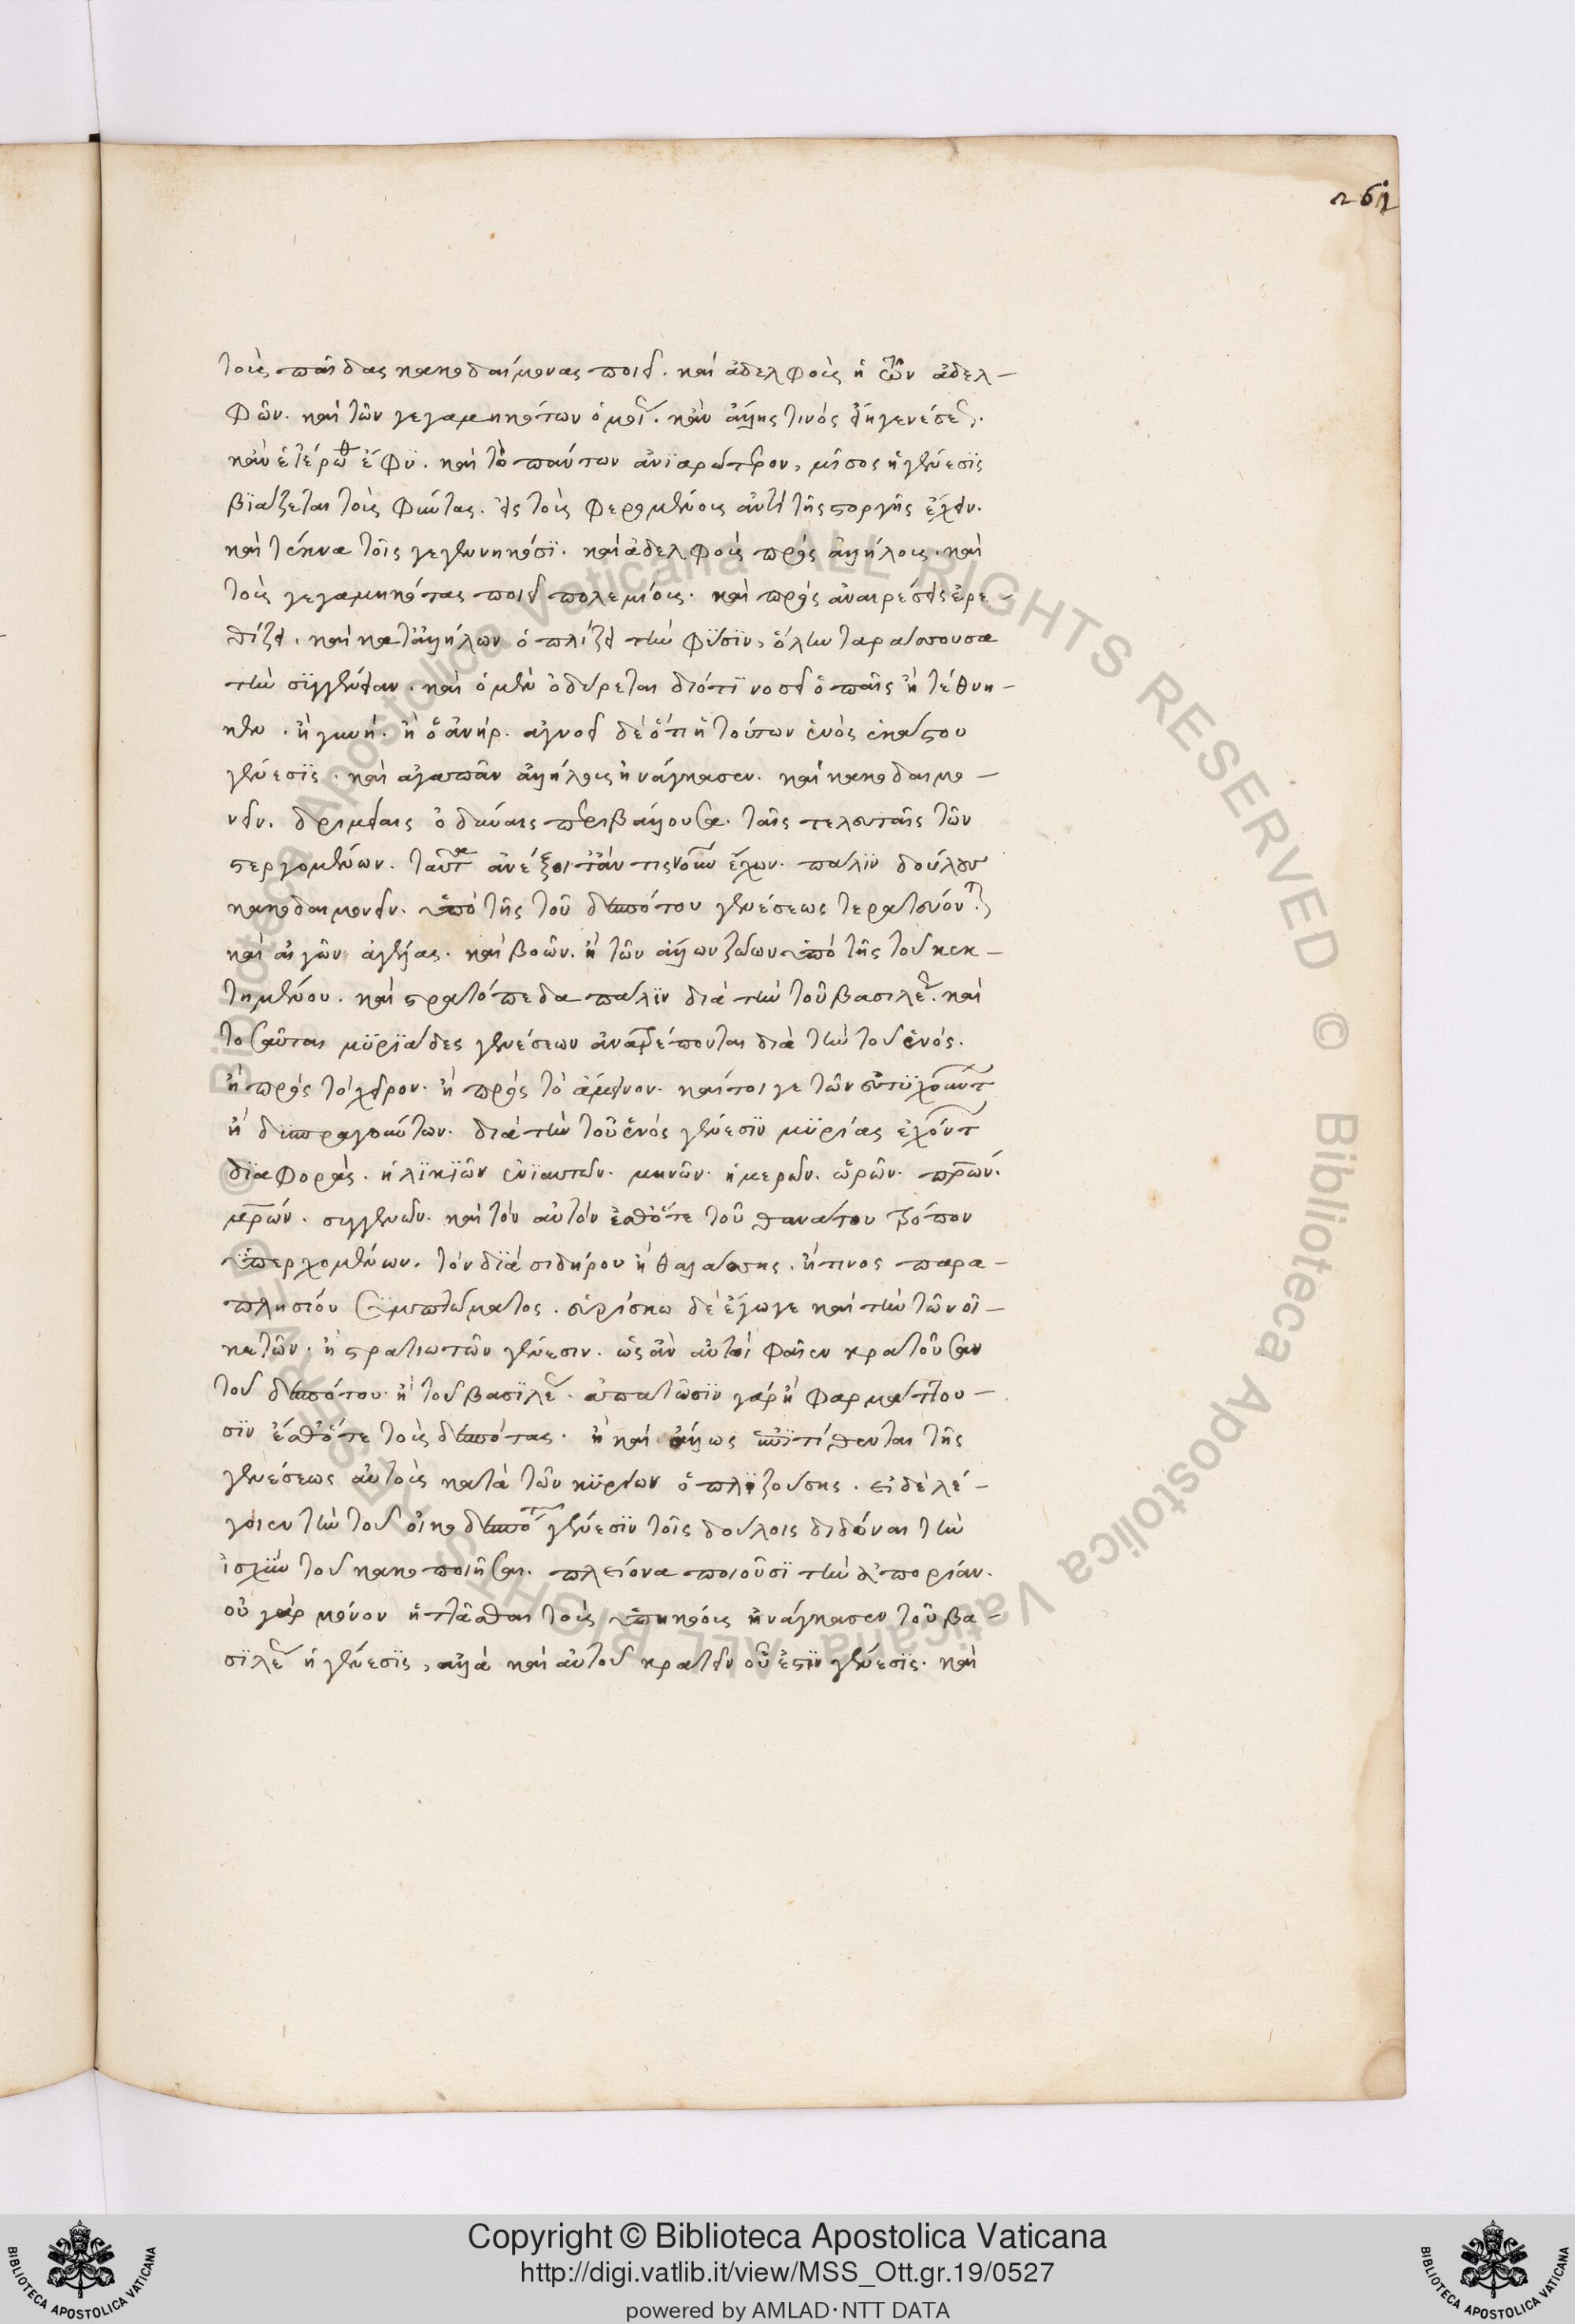 261
τοὺς παῖδας κακοδαίμονας ποιεῖ. καὶ ἀδελφοὺς ἡ τῶν ἀδελ-
φῶν. καὶ τῶν γεγαμηκότων ὁμοῦ. κἂν ἄλλης τινὸς
κἂν ἑτέρωθ ἔφυ. καὶ τὸ πάντων ἀνϊαρώτερον, μῖσος ἡ γένεσϊς
βϊάζεται τοὺς φύντας. εἰς τοὺς φερομένους ἀντὶ τῆς στοργῆς ἔχειν.
καὶ τέκνα τοῖς γεγεννηκόσϊ. καὶ ἀδελφοὺς πρὸς ἀλλήλους. καὶ
τοὺς γεγαμηκότας ποιεῖ πολεμίους. καὶ πρὸς ἀναιρέσεις ἐρε-
θίζει. καὶ κατ' ἀλλήλων ὁπλίζει τὴν φύσϊν, ὅλην ταράσσουσα
τὴν συγγένειαν. καὶ ὁ μὲν ὀδύρεται διότϊ νοσεῖ ὁ παῖς ἢ τέθνη-
κεν. ἢ γυνή. ἢ ὁ ἀνήρ. ἀγνοεῖ δὲ ὅτι ἡ τούτων ἑνὸς ἑκάστου
γένεσϊς. καὶ ἀγαπᾶν ἀλλήλους ἠνάγκασεν. καὶ κακοδαιμο-
νεῖν. δριμείαις ὀδύναις περιβάλλουσα. ταῖς τελευταῖς τῶν
στεργομένων. ταῦτα ἀνέξοιτ' ἄν τις νοῦν ἔχων. πάλϊν δούλους
κακοδαιμονεῖν. ὑπὸ τῆς τοῦ δεσπότου γενέσεως τερατευόντων
καὶ αἰγῶν ἀγέλας. καὶ βοῶν. ἢ τῶν ἄλλων ζώων ὑπὸ τῆς τοῦ κεκ-
τημένου. καὶ στρατόπεδα πάλϊν διὰ τὴν τοῦ βασιλέως. καὶ
τοσαῦται μϋρϊάδες γενέσεων ἀνατρέπονται διὰ τὴν τοῦ ἑνός.
ἢ πρὸς τὸ χεῖρον. ἢ πρὸς τὸ ἄμεινον. καίτοι γε τῶν εὐτυχούντων
ἢ δυσπραγούντων. διὰ τὴν τοῦ ἑνὸς γένεσϊν μϋρίας ἐχόντων
δϊαφοράς. ἡλϊκϊῶν ἐνϊαυτῶν. μηνῶν. ἡμερῶν. ὡρῶν. πατέρων.
μητέρων. συγγενῶν. καὶ τὸν αὐτὸν ἔσθ' ὅτε τοῦ θανάτου τρόπον
ὑπερχομένων. τὸν δϊὰ σιδήρου ἢ θαλάσσης. ἤ τινος παρα-
πλησίου συμπτώματος. εὑρίσκω δὲ ἔγωγε καὶ τὴν τῶν οἰ-
κετῶν. ἢ στρατιωτῶν γένεσιν. ὡς ἂν αὐτοὶ φαῖεν κρατοῦσαν
τοῦ δεσπότου ἢ τοῦ βασϊλέως. ἀπατῶσϊν γὰρ ἢ φαρμάττου-
σϊν ἔσθ' ὅτε τοὺς δεσπότας. ἢ καὶ ἄλλως ἐπϊτίθενται τῆς
γενέσεως αὐτοὺς κατὰ τῶν κϋρίων ὁπλϊζούσης. εἰ δὲ λέ-
γοιεν τὴν τοῦ οἰκοδεσπότου γένεσϊν τοῖς δούλοις διδόναι τὴν
ἰσχὺν τοῦ κακοποιῆσαι. πλείονα ποιοῦσϊ τὴν ἀπορίαν.
οὐ γὰρ μόνον ἡττᾶσθαι τοὺς ὑπηκόους ἠνάγκασεν τοῦ βα-
σϊλέως ἡ γένεσϊς, ἀλλὰ καὶ αὐτοῦ κρατεῖν οὗ ἐστϊν γένεσϊς. καὶ
Copyright © Biblioteca Apostolica Vaticana
http://digi.vatlib.it/view/MSS_Ott.gr.19/0527
powered by AMLAD·NTT DATA